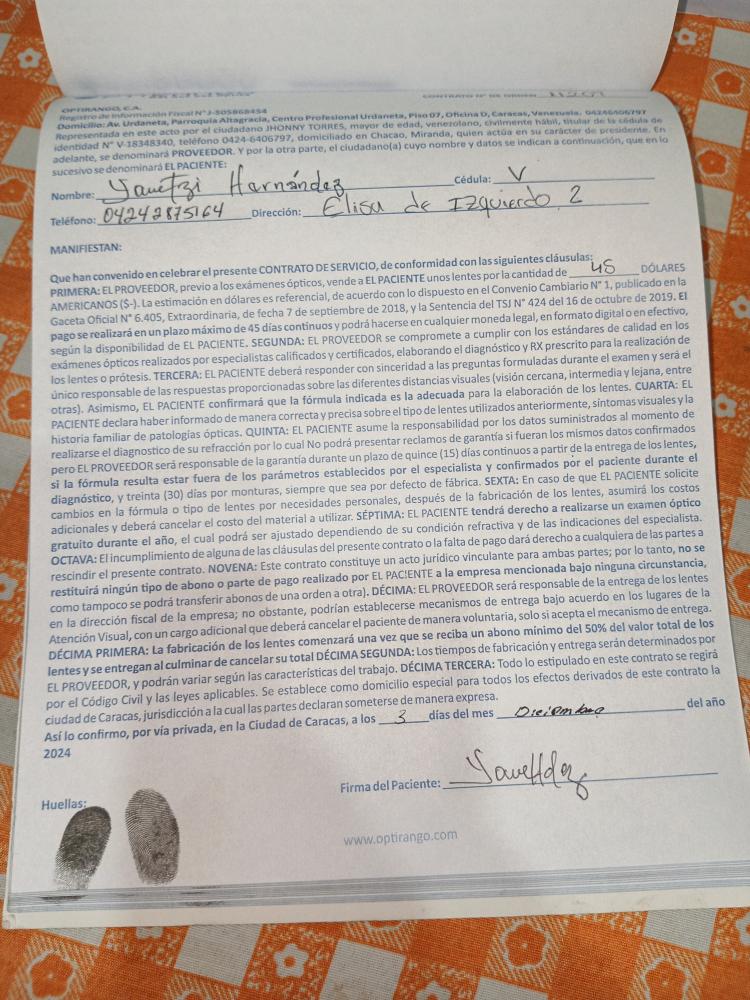 OPTIRANGO, C.A.
Registro de Información Fiscal N° J-505868454
Domicilio: Av. Urdaneta, Parroquia Altagracia, Centro Profesional Urdaneta, Piso 07, Oficina D, Caracas, Venezuela. 04246406797
Representada en este acto por el ciudadano JHONNY TORRES, mayor de edad, venezolano, civilmente hábil, titular de la cédula de
identidad N° V-18348340, teléfono 0424-6406797, domiciliado en Chacao, Miranda, quien actúa en su carácter de presidente. En
adelante, se denominará PROVEEDOR. Y por la otra parte, el ciudadano(a) cuyo nombre y datos se indican a continuación, que en lo
sucesivo se denominará EL PACIENTE:
Nombre: Yanetzi Harnández Cédula: V
Teléfono: 04242875164 Dirección: Elisa de Izquierdo 2
MANIFIESTAN:
Que han convenido en celebrar el presente CONTRATO DE SERVICIO, de conformidad con las siguientes cláusulas:
PRIMERA: EL PROVEEDOR, previo a los exámenes ópticos, vende a EL PACIENTE unos lentes por la cantidad de 45 DÓLARES
AMERICANOS ($-). La estimación en dólares es referencial, de acuerdo con lo dispuesto en el Convenio Cambiario N° 1, publicado en la
Gaceta Oficial N° 6.405, Extraordinaria, de fecha 7 de septiembre de 2018, y la Sentencia del TSJ N° 424 del 16 de octubre de 2019. El
pago se realizará en un plazo máximo de 45 días continuos y podrá hacerse en cualquier moneda legal, en formato digital o en efectivo,
según la disponibilidad de EL PACIENTE. SEGUNDA: EL PROVEEDOR se compromete a cumplir con los estándares de calidad en los
exámenes ópticos realizados por especialistas calificados y certificados, elaborando el diagnóstico y RX prescrito para la realización de
los lentes o prótesis. TERCERA: EL PACIENTE deberá responder con sinceridad a las preguntas formuladas durante el examen y será el
único responsable de las respuestas proporcionadas sobre las diferentes distancias visuales (visión cercana, intermedia y lejana, entre
otras). Asimismo, EL PACIENTE confirmará que la fórmula indicada es la adecuada para la elaboración de los lentes. CUARTA: EL
PACIENTE declara haber informado de manera correcta y precisa sobre el tipo de lentes utilizados anteriormente, síntomas visuales y la
historia familiar de patologías ópticas. QUINTA: EL PACIENTE asume la responsabilidad por los datos suministrados al momento de
realizarse el diagnostico de su refracción por lo cual No podrá presentar reclamos de garantía si fueran los mismos datos confirmados
pero EL PROVEEDOR será responsable de la garantía durante un plazo de quince (15) días continuos a partir de la entrega de los lentes,
si la fórmula resulta estar fuera de los parámetros establecidos por el especialista y confirmados por el paciente durante el
diagnóstico, y treinta (30) días por monturas, siempre que sea por defecto de fábrica. SEXTA: En caso de que EL PACIENTE solicite
cambios en la fórmula o tipo de lentes por necesidades personales, después de la fabricación de los lentes, asumirá los costos
adicionales y deberá cancelar el costo del material a utilizar. SÉPTIMA: EL PACIENTE tendrá derecho a realizarse un examen óptico
gratuito durante el año, el cual podrá ser ajustado dependiendo de su condición refractiva y de las indicaciones del especialista.
OCTAVA: El incumplimiento de alguna de las cláusulas del presente contrato o la falta de pago dará derecho a cualquiera de las partes a
rescindir el presente contrato. NOVENA: Este contrato constituye un acto jurídico vinculante para ambas partes; por lo tanto, no se
restituirá ningún tipo de abono o parte de pago realizado por EL PACIENTE a la empresa mencionada bajo ninguna circunstancia,
como tampoco se podrá transferir abonos de una orden a otra). DÉCIMA: EL PROVEEDOR será responsable de la entrega de los lentes
en la dirección fiscal de la empresa; no obstante, podrían establecerse mecanismos de entrega bajo acuerdo en los lugares de la
Atención Visual, con un cargo adicional que deberá cancelar el paciente de manera voluntaria, solo si acepta el mecanismo de entrega.
DÉCIMA PRIMERA: La fabricación de los lentes comenzará una vez que se reciba un abono mínimo del 50% del valor total de los
lentes y se entregan al culminar de cancelar su total DÉCIMA SEGUNDA: Los tiempos de fabricación y entrega serán determinados por
EL PROVEEDOR, y podrán variar según las características del trabajo. DÉCIMA TERCERA: Todo lo estipulado en este contrato se regirá
por el Código Civil y las leyes aplicables. Se establece como domicilio especial para todos los efectos derivados de este contrato la
ciudad de Caracas, jurisdicción a la cual las partes declaran someterse de manera expresa.
Así lo confirmo, por vía privada, en la Ciudad de Caracas, a los 3 días del mes Diciembre del año
2024
Firma del Paciente: YaneHdez
Huellas:
www.optirango.com